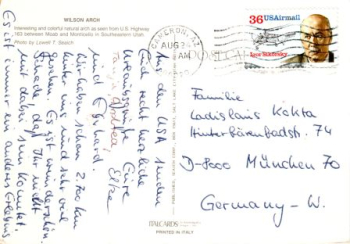 WILSON ARCH
Interesting and colorful natural arch as seen from U.S. Highway
163 between Moab and Monticello in Southeastern Utah.
Photo by Lowell T. Seech
36 USAirmail
Igor Sikorsky
AUG
AM
Aus den USA senden
Euch recht herzliche
Urlaubsgrüße Eure
Elke
und Eberhard.
Wir haben schon 2.700 km
hinter uns und sehr viel
gesehen. Es ist wunderschön.
Schade, daß Ihr nicht
mit dabei sein könntet.
Es ist immer ein anderes Erlebnis
Familie
Ladislaus Kokta
Hinterbärenbadstr. 74
D-8000 München 70
Germany - W.
ITALCARDS
PRINTED IN ITALY